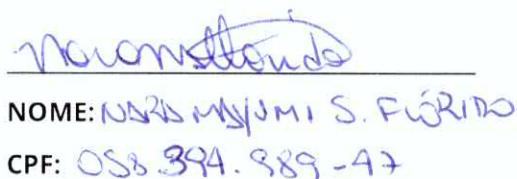 NOME: NARA MAYUMI S. FLÓRIDO
CPF: 058.394.989-47